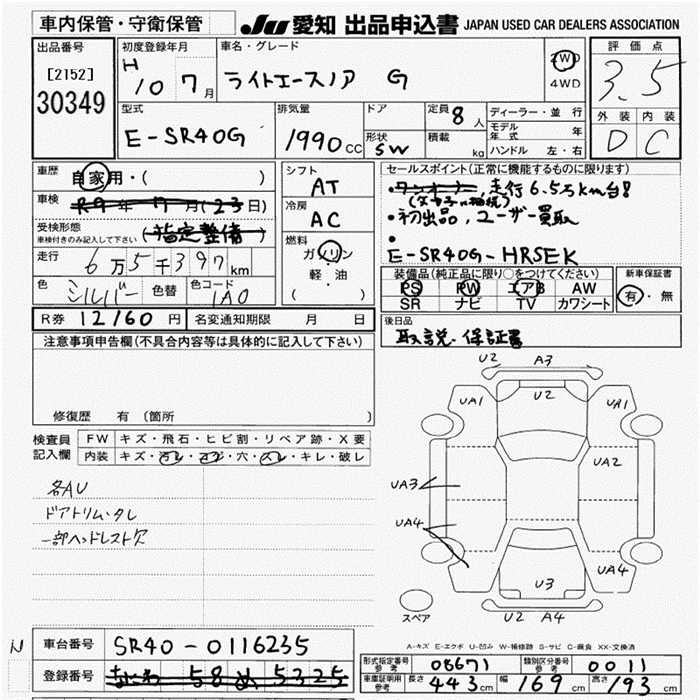 車内保管・守衛保管
JU 愛知 出品申込書 JAPAN USED CAR DEALERS ASSOCIATION
出品番号
[2152]
30349
初度登録年月
H 10 7月
車名・グレード
ライトエースノア G
2WD
4WD
評価点
3.5
外装 内装
D C
型式
E-SR40G
排気量
1990 CC
ドア
形状
SW
定員 8人
積載 kg
ディーラー・並行
モデル年式 年
ハンドル 左・右
車歴 自家用・( )
車検 R9年 7月(23日)
受検形態
車検付きのみ記入して下さい
(指定整備)
走行
6万5千397km
色 シルバー 色替 色コード 1A0
シフト
AT
冷房
AC
燃料
ガソリン
軽・油
セールスポイント(正常に機能するものに限ります)
・ワンオーナー, 走行6.5万km台!
・初出品, ユーザー買取
・
E-SR40G-HRSEK
装備品(純正品に限り○をつけてください)
PS PW エアB AW
SR ナビ TV カワシート
新車保証書
有・無
R券 12160円 名変通知期限 月 日
後日品
取説・保証書
注意事項申告欄(不具合内容等は具体的に記入して下さい)
修復歴 有 (箇所
検査員
記入欄
FW キズ・飛石・ヒビ割・リペア跡・X要
内装 キズ・汚レ・コゲ・穴・スレ・キレ・破レ
各AU
ドアトリム・タレ
一部ヘッドレスト欠
U2 A3
UA1 U2 UA1
UA3 UA2
UA4
U3 UA4
スペア
U2 A4
A-キズ E-エクボ U-凹み W-補修跡 S-サビ C-腐食 XX-交換済
N
車台番号 SR40-0116235
登録番号 なにわ 58め 5325
型式指定番号 参考 08671 類別区分番号 参考 0011
車庫証明用 参考 長さ 443cm 幅 169cm 高さ 193cm